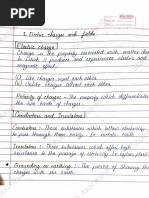 1. Electric charges and fields
Electric charge
Charge is the property associated with matter due
to which it produces and experiences electric and
magnetic effect.
(i) Like charges repel each other
(ii) Unlike charges attract each other
Polarity of charges - The property which differentiates
the two kinds of charges.
Conductors and Insulators
Conductors - Those substances which allow electricity
to pass through them easily are called conductors.
Insulators - Those substances which offer high
resistance to the passage of electricity. Ex nylon, plastic
Grounding or earthing - The process of sharing the
charges with earth.